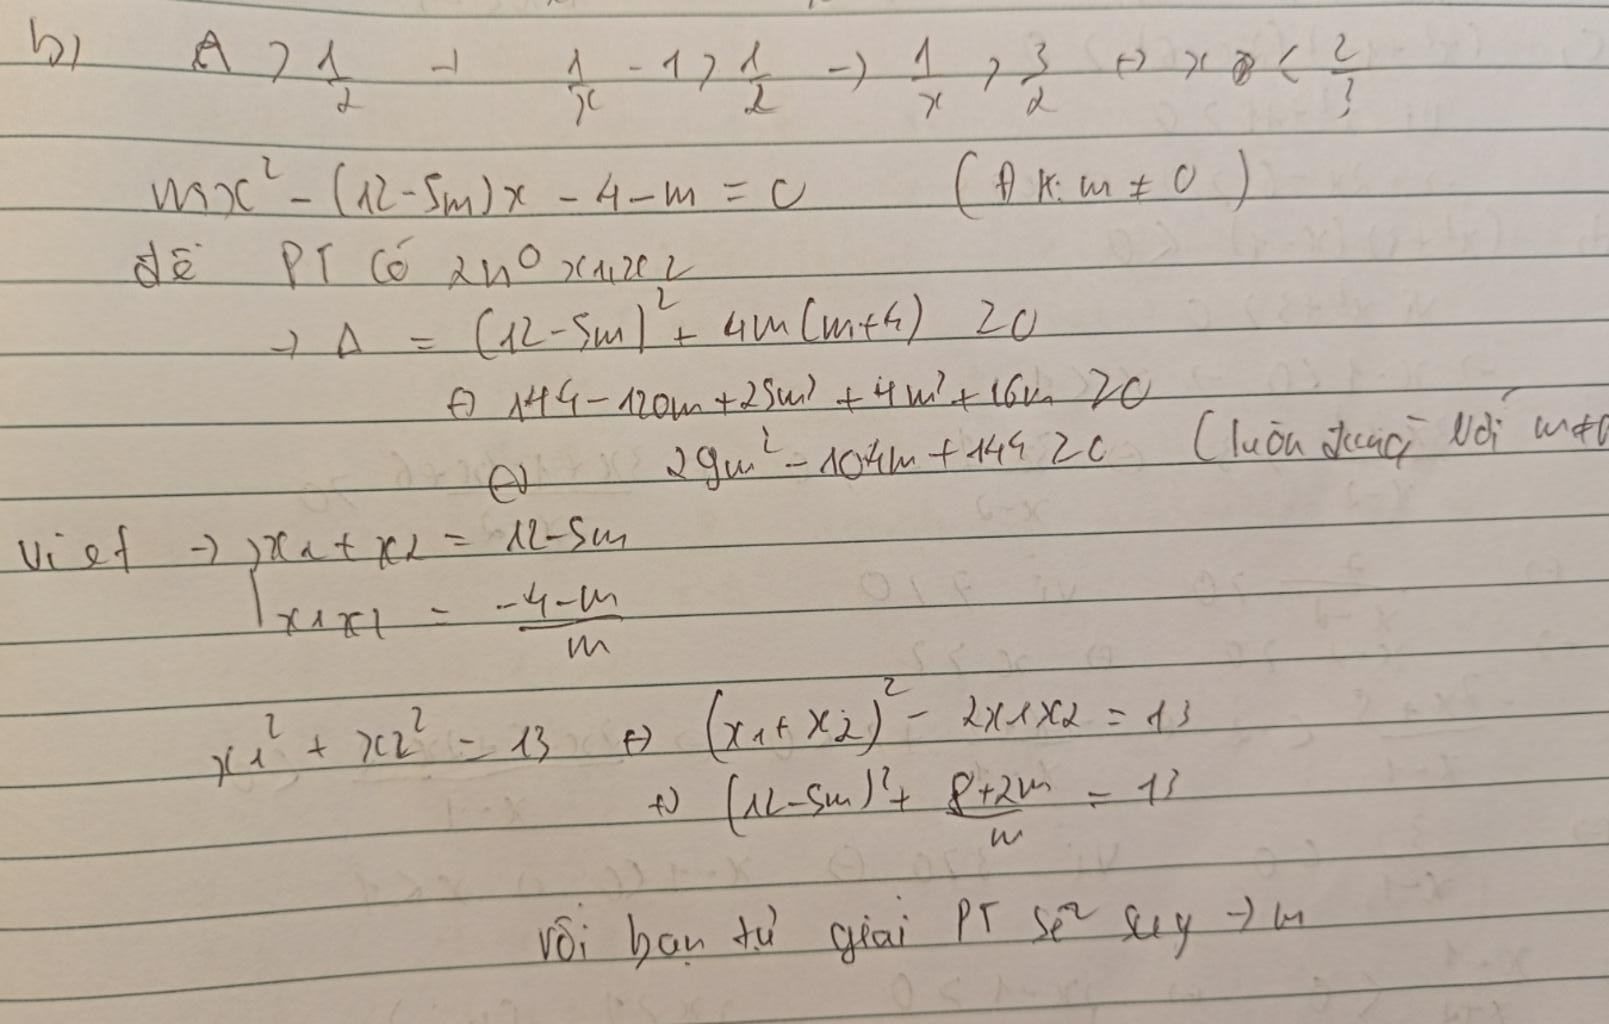 b) A > 1/2 → 1/x - 1 > 1/2 → 1/x > 3/2 ↔ x < 2/3
mx² - (12-5m)x - 4 - m = 0 (ĐK: m ≠ 0)
để PT có 2n⁰ x1,x2
→ Δ = (12-5m)² + 4m(m+4) ≥ 0
⇔ 144 - 120m + 25m² + 4m² + 16m ≥ 0
⇔ 29m² - 104m + 144 ≥ 0 (luôn đúng với m≠0
Viet → { x1 + x2 = 12-5m
x1x2 = (-4-m)/m
x1² + x2² = 13 ⇔ (x1 + x2)² - 2x1x2 = 13
⇔ (12-5m)² + (8+2m)/m = 13
rồi bạn tự giải PT sẽ suy → m